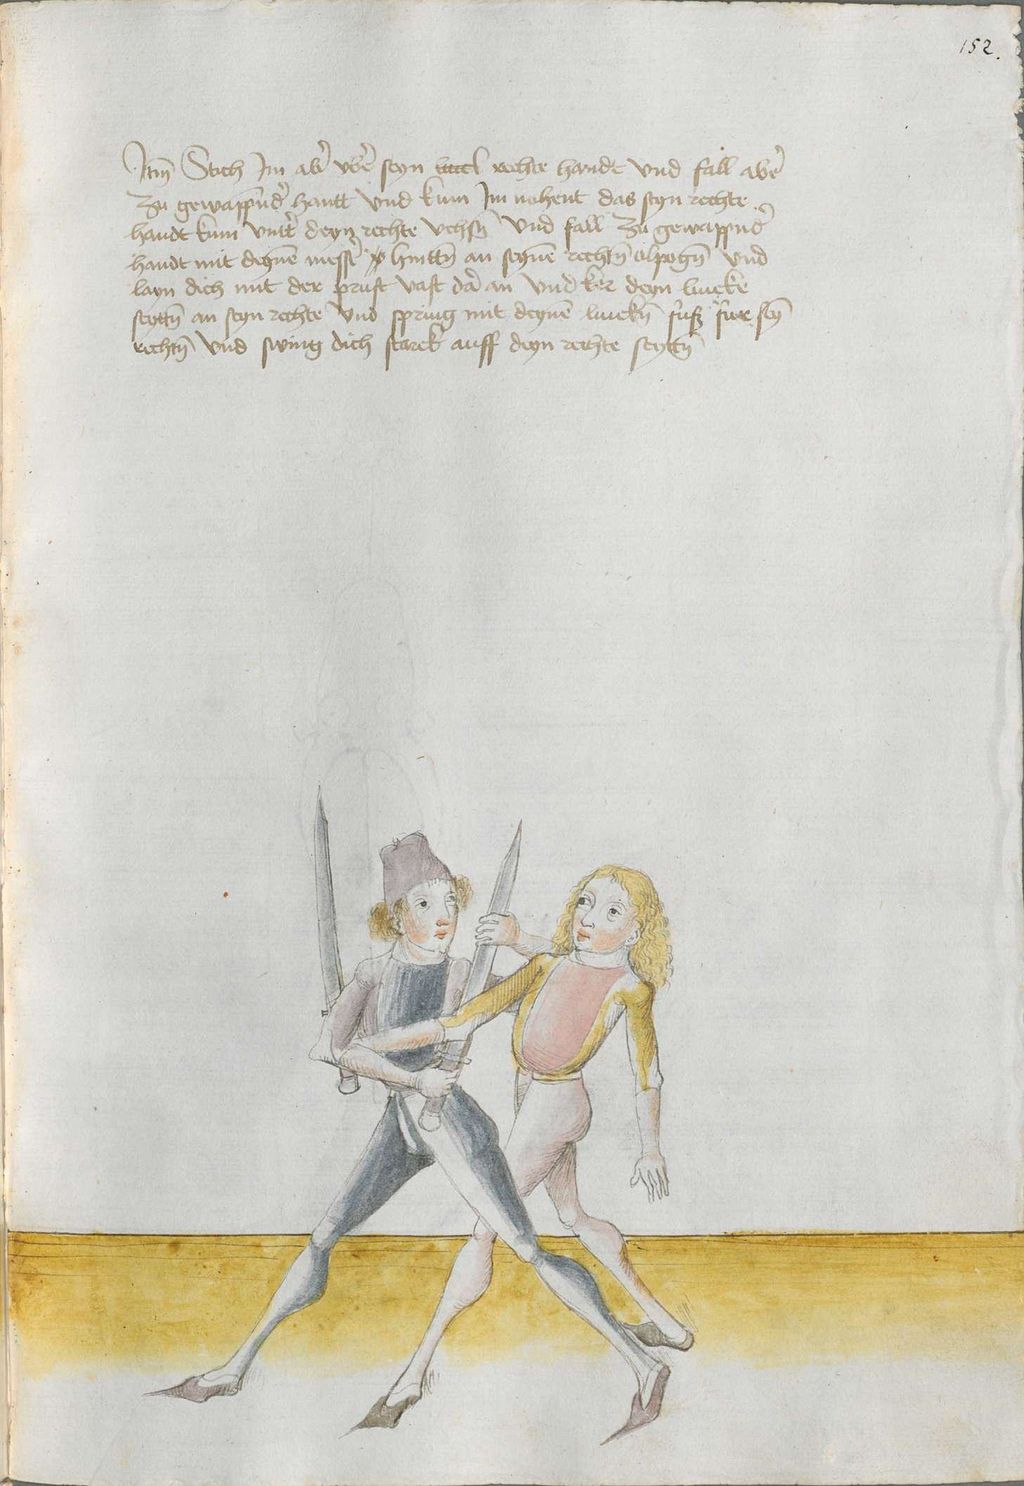 152.
Itm̄ Stich Im abʼ vbʼe seyn rechte hande vnd fall abeʼ
Zu gewappūdʼ hantt vnd kum Im nohent das seyn rechte
handt kum vntʼ deyn rechte vchsn̄ vnd fall Zu gewappnd̄ʼ
handt mit deynē messʼ hinttn̄ an seynē rechtn̄ elpogn̄ vnd
layn dich mit der prust vast daʼ an vnd ker deyn lincke
seyttn̄ an seyn rechte vnd spring mit deynē linckn̄ fuß fur sey̅
rechtn̄ vnd swing dich starck auff deyn rechte seyttn̄